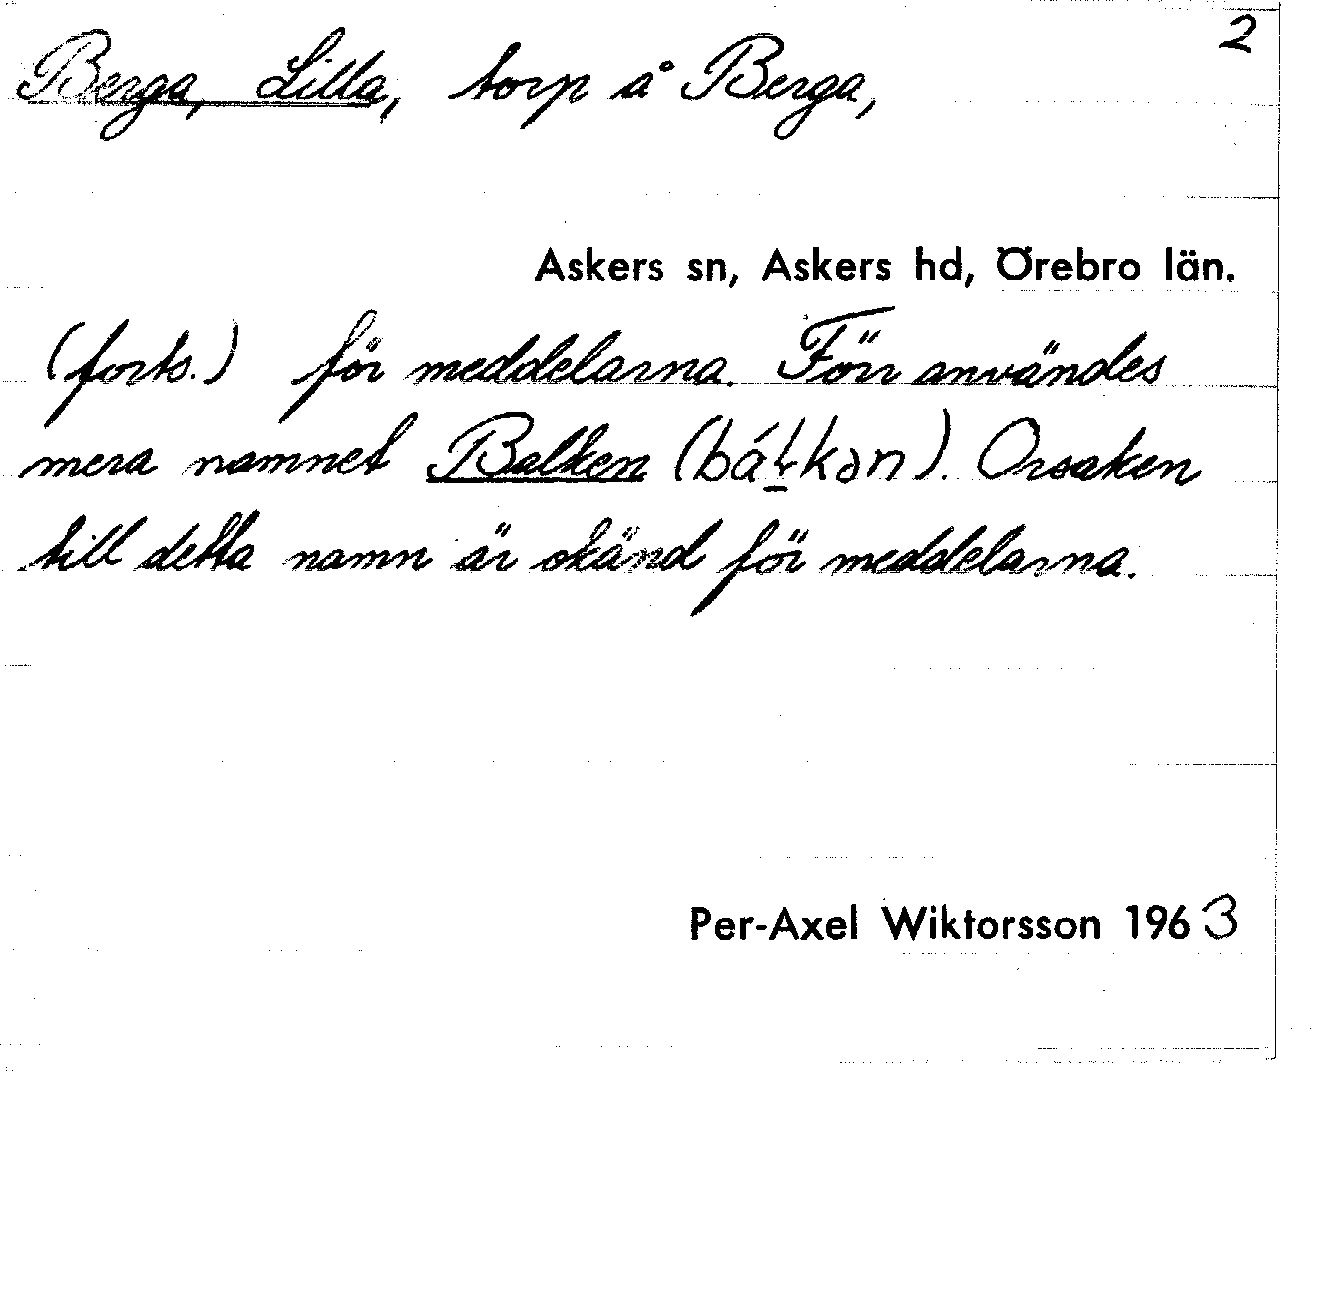 2
Berga, Lilla, torp å Berga,
Askers sn, Askers hd, Örebro län.
(forts.) för meddelarna. Förr användes
mera namnet Balken (báɫ̠kən). Orsaken
till detta namn är okänd för meddelarna.
Per-Axel Wiktorsson 1963